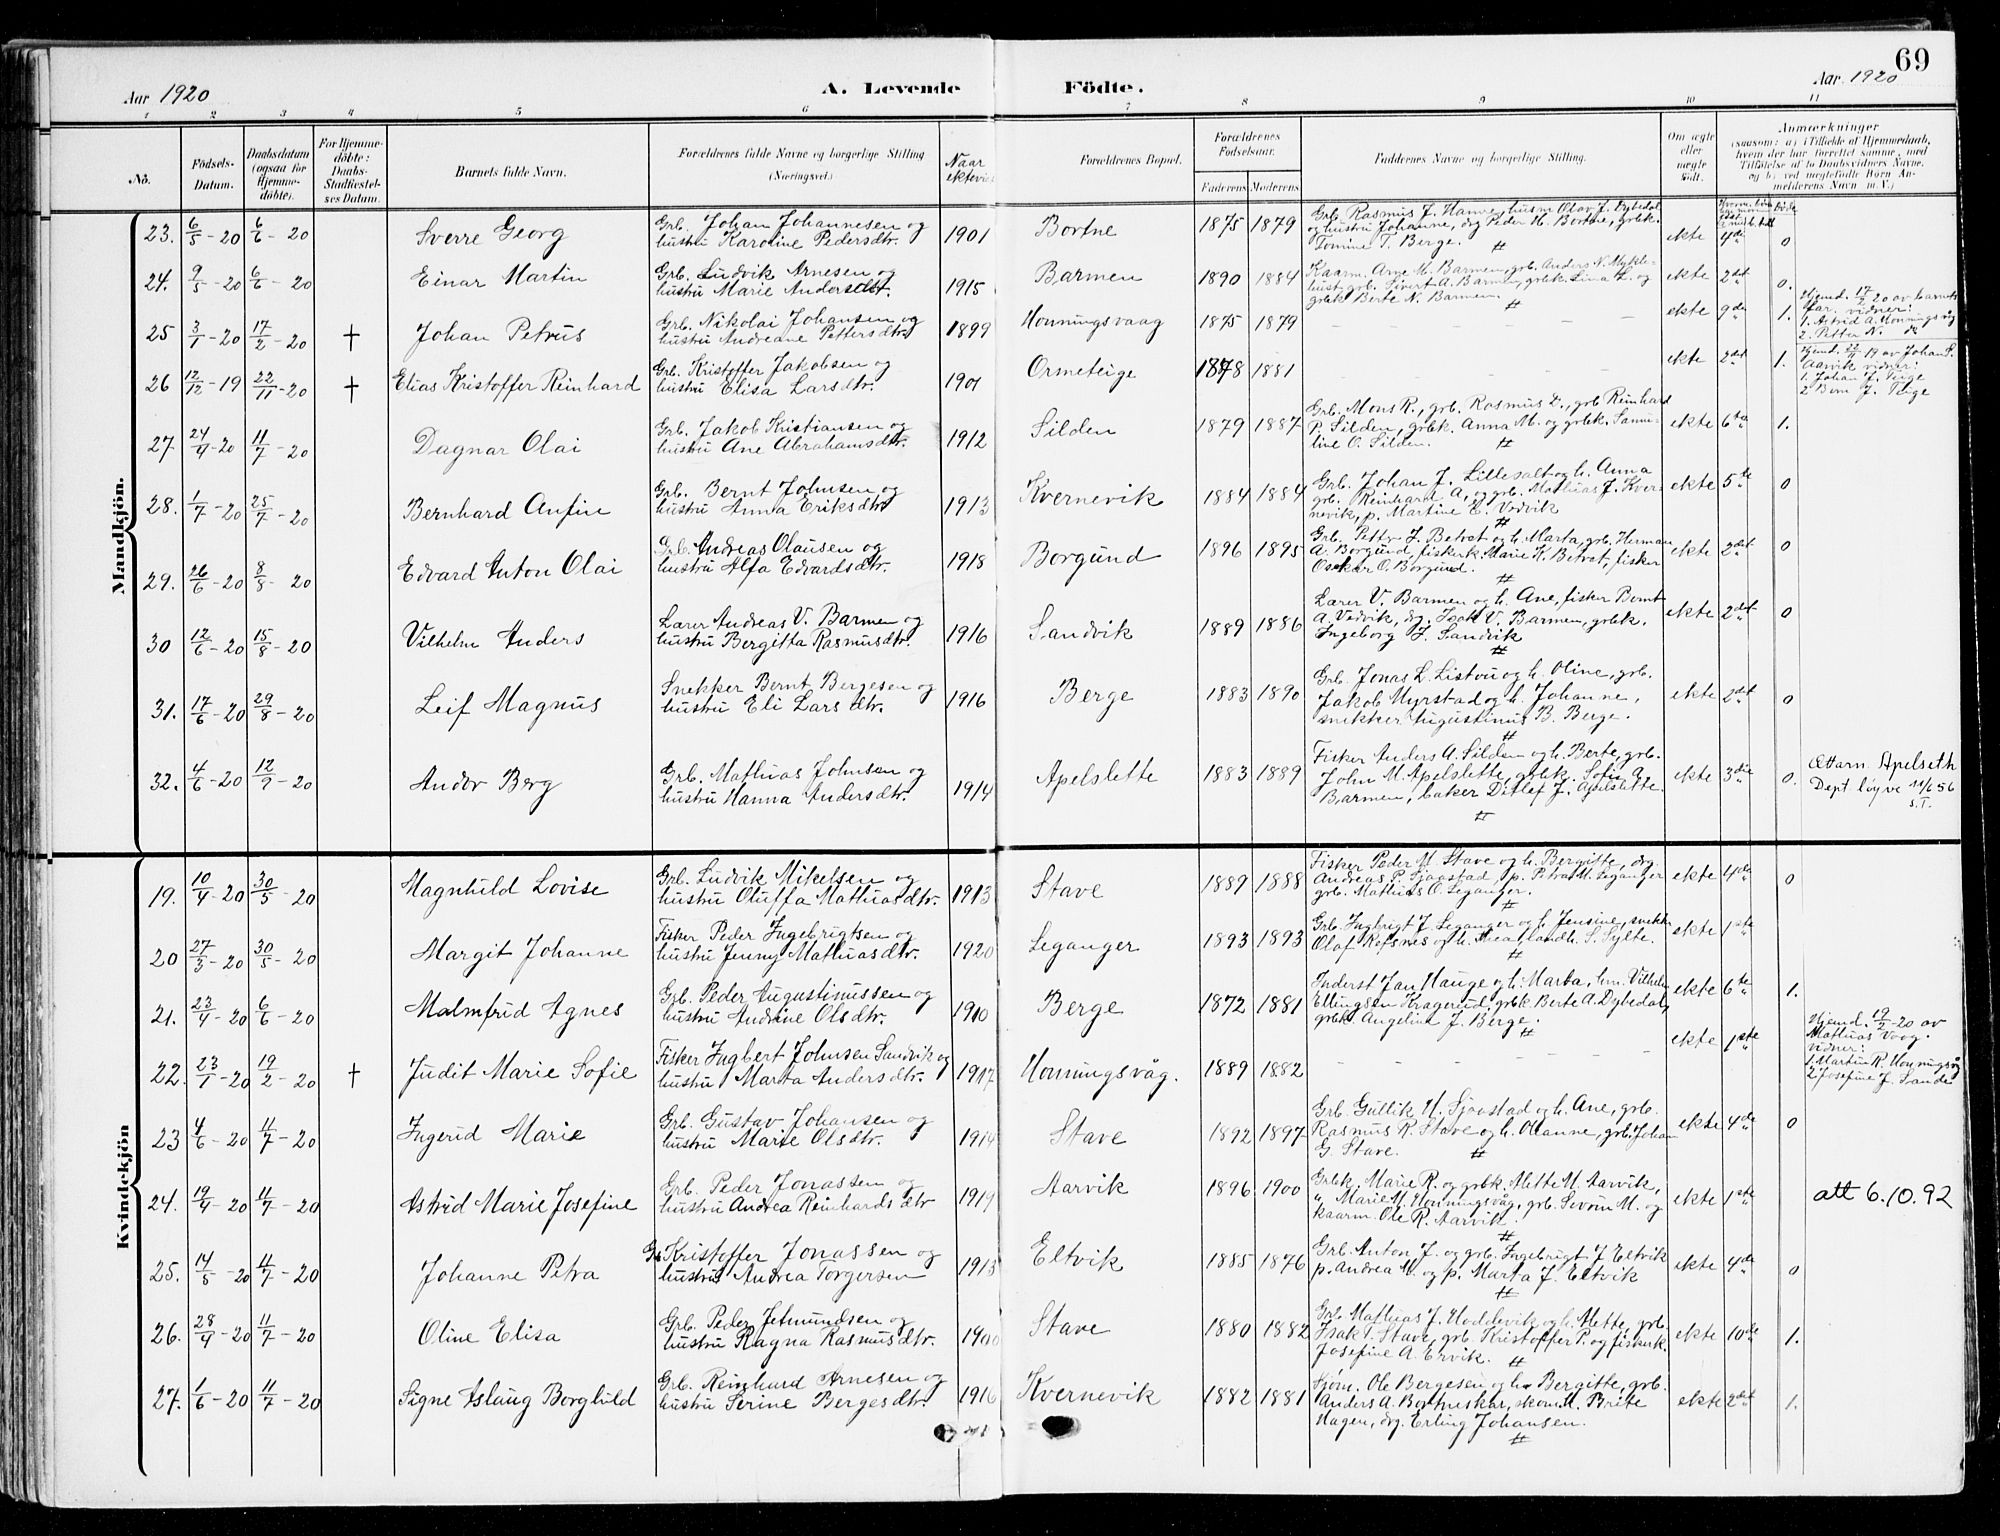 69
Aar 1920 A. Levende Födte. Aar 1920
1 2 3 4 5 6 7 8 9 10 11
No. Födsels-Datum. Daabsdatum (ogsaa for Hjemmedöbte). For Hjemmedöbte: Daabs-Stadfæstelses Datum. Barnets fulde Navn. Forældrenes fulde Navne og borgerlige Stilling (Næringsvei.) Naar ektevie Forældrenes Bopæl. Forældrenes Födselsaar. Faderens Moderens Faddernes Navne og borgerlige Stilling. Om ægte eller uægte födt. Anmærkninger
(saasom: a) i Tilfælde af Hjemmedaab, hvem der har forrettet samme, med Tilföielse af to Daabsvidners Navne, og b) ved uægtefödte Börn Anmelderens Navn m. V.)
Mandkjön.
23. 6/5-20 6/6-20 Sverre Georg Grb. Johan Johannesen og
hustru Karoline Pedersdtr. 1901 Bortne 1875 1879 Grb. Rasmus J. Hamre, husm Olav J. Dybedal
og hustru Johanne, drg Peder H. Bortne, grbk.
Tomine T. Berge. ekte 4de 0
24. 9/5-20 6/6-20 Einar Martin Grb. Ludvik Arnesen og
hustru Marie Andersdtr. 1915 Barmen 1890 1884 Kaarm. Arne M. Barmen, grb. Anders N. Mykle-
hust, grb. Sivert A. Barmen, grbk. Lina L. og
grbk Berte N. Barmen. ekte 2det 0.
25 3/1-20 17/2-20 † Johan Petrus Grb. Nikolai Johansen og
hustru Andreane Pettersdtr. 1899 Honningsvaag 1875 1879 – – – – – ekte 9de 1. Hjemd. 17/2 20 av barnets
far. vidner:
1. Astrid A. Honningsvåg
2. Petter N. do
26 12/12-19 22/11-20 † Elias Kristoffer Reinhard Grb. Kristoffer Jakobsen og
hustru Elisa Larsdtr. 1901 Ormeteige 1878 1881 – – – – – ekte 2det 1. Hjemd. 22/11 19 av Johan S.
Aarvik vidner:
1. Johan J. Teige
2 Bern J. Teige
27. 24/4-20 11/7-20 Dagnar Olai Grb. Jakob Kristiansen og
hustru Ane Abrahamsdtr. 1912 Silden 1879 1887 Grb. Mons R., grb. Rasmus L., grb Reinhard
P. Silden, grbk. Anna M. og grbk. Samu-
line O. Silden. ekte 6te 1.
28. 1/7-20 25/7-20 Bernhard Anfin Grb. Bernt Johnsen og
hustru Anna Eriksdtr 1913 Kvernevik 1884 1884 Grb. Johan J. Lillesalt og h. Anna
grb. Reinhard A, og grb. Mathias J. Kver-
nevik, p. Martine E. Vedvik ekte 5te 0
29. 26/6-20 8/8-20 Edvard Anton Olai Grb. Andreas Olausen og
hustru Alfa Edvardsdtr. 1918 Borgund 1896 1895 Grb. Petter J. Betvet og h. Marta, grb, Herman
A. Borgund, fiskerk. Marie K. Betvet, fisker
Oskar O. Borgund. ekte 2det 0
30 12/6-20 15/8-20 Vilhelm Anders Lærer Andreas V. Barmen og
hustru Bergitta Rasmusdtr. 1916 Sandvik 1889 1886 Lærer V. Barmen og h. Ane, fisker Bernt
A. Vedvik, drg. Isak V. Barmen, grbk.
Ingeborg J. Sandvik ekte 2det 0
31. 17/6-20 29/8-20 Leif Magnus Snekker Bernt Bergesen og
hustru Eli Larsdtr. 1916 Berge 1883 1890 Grb. Jonas L. Listou og h. Oline, grb.
Jakob Myrstad og h. Johanne,
snikker Augustinus B. Berge. ekte 2det 0
32. 4/6-20 12/9-20 Andor Berg Grb. Mathias Johnsen og
hustru Hanna Andersdtr. 1914 Apelslette 1883 1889 Fisker Anders A. Silden og h. Berte, grb.
John M. Apelslette, grbk. Sofie A.
Barmen, baker Ditlef J. Apelslette. ekte 3die 0. Ættarn. Apelseth
Dept. løyve 11/6 56
s.T.
Kvindekjön
19. 10/4-20 30/5-20 Magnhild Lovise Grb. Ludvik Mikelsen og
hustru Oluffa Mathiasdtr. 1913 Stave 1889 1888 Fisker Peder M. Stave og h. Bergitte, drg.
Andreas P. Sjaastad, p. Petra M. Leganger
grb. Mathias O. Leganger. ekte 4de 0
20 27/3-20 30/5-20 Margit Johanne Fisker Peder Ingebrigtsen og
hustru Jenny Mathiasdtr. 1920 Leganger 1893 1893 Grb. Ingbrigt J. Leganger og h. Jensine, snekk.
Olaf Refsnes og h. Thea, landh. S. Sylte. ekte 1ste
21. 23/4-20 6/6-20 Malmfrid Agnes Grb. Peder Augustinussen og
hustru Andrine Olsdtr. 1910 Berge 1872 1881 Inderst Jan Hauge og h. Marta, hm. Vilhelm
Ellingsen Kragerud, grbk Berte A. Dybedal,
grbk. Angeline J. Berge. ekte 6te 1.
22. 23/1-20 19/2-20 † Judit Marie Sofie Fisker Ingbert Johnsen Sandvik og
hustru Marta Andersdtr. 1917 Honningsvåg. 1889 1882 – – – – – ekte 1ste Hjemd. 19/2-20 av
Mathias Vaag.
vidner:
1. Martin R. Honningsvåg
2 Josefine J. Sande
23 4/6-20 11/7-20 Ingerid Marie Grb. Gustav Johansen og
hustru Marie Olsdtr. 1914 Stave 1892 1897 Grb. Gullik H. Sjaastad og h. Ane, grb.
Rasmus R. Stave og h. Olianne, grb. Johan
G. Stave. ekte 4de 0
24. 19/4-20 11/7-20 Astrid Marie Josefine Grb. Peder Jonassen og
hustru Andrea Reinhardsdtr 1919 Aarvik 1896 1900 Grbk. Marie R. og grbk. Mette M. Aarvik,
" Marie M. Honningsvåg, grb. Severin M. og
kaarm. Ole R. Aarvik. ekte 1ste att 6.10.92
25. 14/5-20 11/7-20 Johanne Petra Grb Kristoffer Jonassen og
hustru Andrea Torgersen 1913 Eltvik 1885 1876 Grb. Anton J. og grb. Ingebrigt J Eltvik
p. Andrea M. og p. Marta J. Eltvik ekte 4de 0
26. 28/4-20 11/7-20 Oline Elisa Grb. Peder Jetmundsen og
hustru Ragna Rasmusdtr. 1900 Stave 1880 1882 Grb. Mathias J. Hoddevik og h. Mette, grb.
Isak T. Stave, grb. Kristoffer P. og fiskerk.
Josefine A. Ervik. ekte 10de 1.
27. 1/6-20 11/7-20 Signe Aslaug Borghild Grb. Reinhard Arnesen og
hustru Serine Bergesdtr 1916 Kvernevik 1882 1881 Kjørm. Ole Bergesen og h. Bergitte, grb.
Anders A. Bortneskar, skom. M. Brite
Hagen, drg. Erling Johansen. ekte 2det 1.